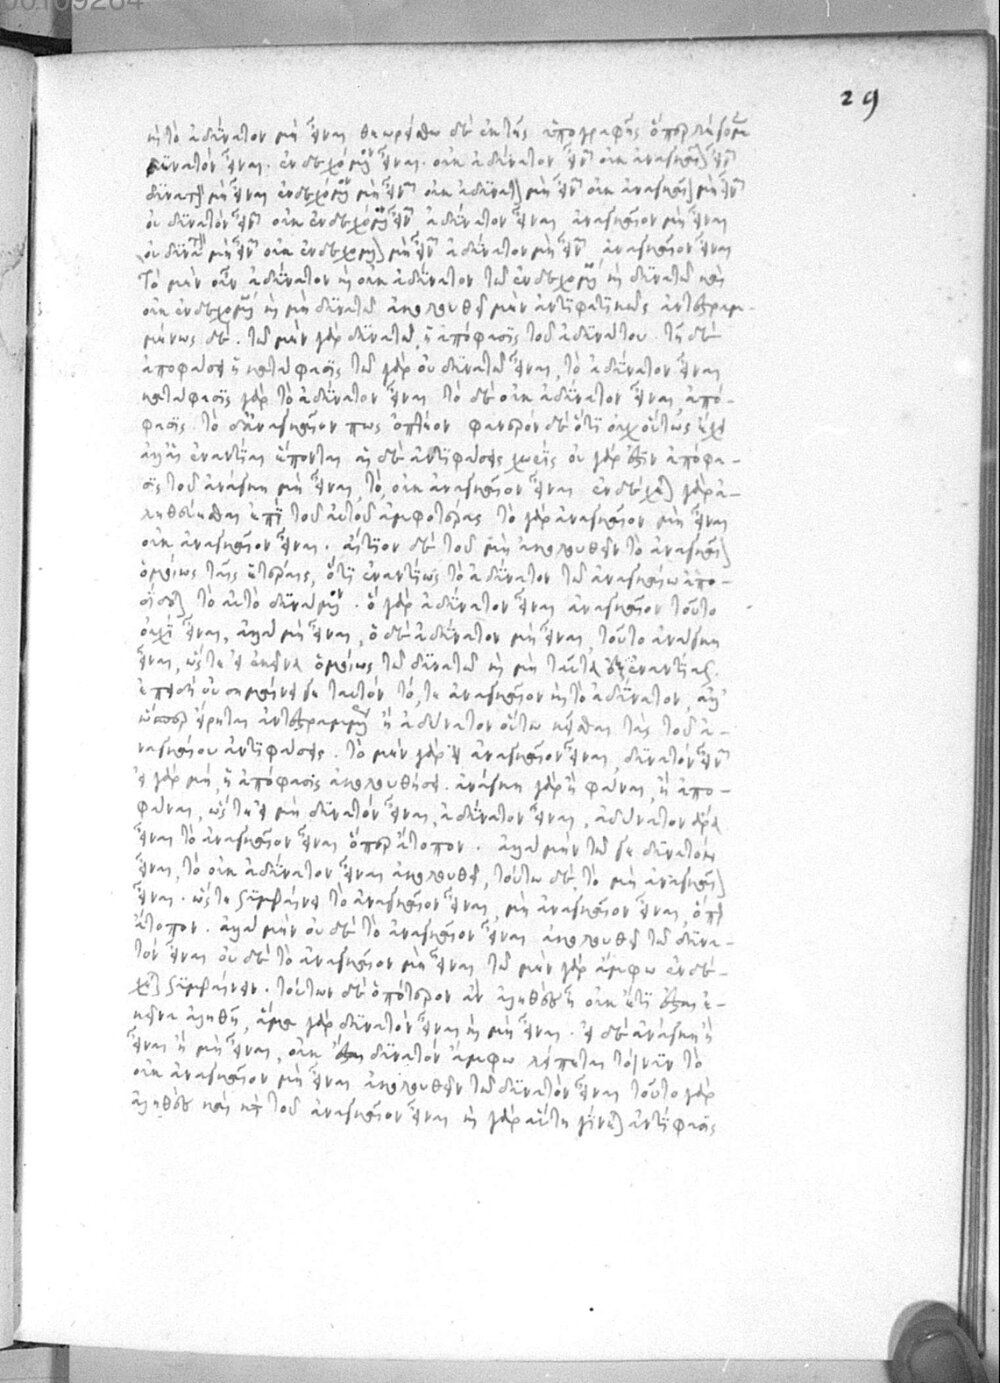 00109284
29
καὶ τὸ ἀδύνατον μὴ εἶναι θεωρείσθω δὲ ἐκ τῆς ὑπογραφῆς ὥσπερ λέγομεν
δυνατὸν εἶναι. ἐνδεχόμενον εἶναι. οὐκ ἀδύνατον εἶναι οὐκ ἀναγκαῖον εἶναι
δυνατὸν μὴ εἶναι ἐνδεχόμενον μὴ εἶναι οὐκ ἀδύνατον μὴ εἶναι οὐκ ἀναγκαῖον μὴ εἶναι
οὐ δυνατὸν εἶναι οὐκ ἐνδεχόμενον εἶναι ἀδύνατον εἶναι ἀναγκαῖον μὴ εἶναι
οὐ δυνατὸν μὴ εἶναι οὐκ ἐνδεχόμενον μὴ εἶναι ἀδύνατον μὴ εἶναι ἀναγκαῖον εἶναι
Τὸ μὲν οὖν ἀδύνατον καὶ οὐκ ἀδύνατον τῷ ἐνδεχομένῳ καὶ δυνατῷ καὶ
οὐκ ἐνδεχομένῳ καὶ μὴ δυνατῷ ἀκολουθεῖ μὲν ἀντιφατικῶς ἀντεστραμ-
μένως δέ. τῷ μὲν γὰρ δυνατῷ, ἡ ἀπόφασις τοῦ ἀδυνάτου. τῇ δὲ
ἀποφάσει ἡ κατάφασις τῷ γὰρ οὐ δυνατῷ εἶναι, τὸ ἀδύνατον εἶναι
κατάφασις γὰρ τὸ ἀδύνατον εἶναι τὸ δὲ οὐκ ἀδύνατον εἶναι ἀπό-
φασις. τὸ δ' ἀναγκαῖον πως ὀπτέον φανερὸν δὲ ὅτι οὐχ οὕτως ἔχει
ἀλλ' αἱ ἐναντίαι ἕπονται αἱ δὲ ἀντιφάσεις χωρίς οὐ γάρ ἐστιν ἀπόφα-
σις τοῦ ἀνάγκη μὴ εἶναι, τὸ, οὐκ ἀναγκαῖον εἶναι ἐνδέχεται γὰρ ἀ-
ληθεύεσθαι ἐπὶ τοῦ αὐτοῦ ἀμφοτέρας τὸ γὰρ ἀναγκαῖον μὴ εἶναι
οὐκ ἀναγκαῖον εἶναι. αἴτιον δὲ τοῦ μὴ ἀκολουθεῖν τὸ ἀναγκαῖον
ὁμοίως τοῖς ἑτέροις, ὅτι ἐναντίως τὸ ἀδύνατον τῷ ἀναγκαίῳ ἀπο-
δίδοται τὸ αὐτὸ δυνάμενον. ὃ γὰρ ἀδύνατον εἶναι ἀναγκαῖον τοῦτο
οὐχὶ εἶναι, ἀλλὰ μὴ εἶναι, ὃ δὲ ἀδύνατον μὴ εἶναι, τοῦτο ἀνάγκη
εἶναι, ὥστε εἰ ἐκεῖνα ὁμοίως τῷ δυνατῷ καὶ μὴ ταῦτα ἐξ ἐναντίας.
ἐπεὶ οὐ σημαίνει γε ταυτόν, τό, τε ἀναγκαῖον καὶ τὸ ἀδύνατον, ἀλλ'
ὥσπερ εἴρηται ἀντεστραμμένως ἢ ἀδύνατον οὕτω κεῖσθαι τὰς τοῦ ἀ-
ναγκαίου ἀντιφάσεις. τὸ μὲν γὰρ εἰ ἀναγκαῖον εἶναι, δυνατὸν εἶναι
εἰ γὰρ μή, ἡ ἀπόφασις ἀκολουθήσει. ἀνάγκη γὰρ ἢ φάναι, ἢ ἀπο-
φάναι, ὥστε εἰ μὴ δυνατὸν εἶναι, ἀδύνατον εἶναι, ἀδύνατον ἄρα
εἶναι τὸ ἀναγκαῖον εἶναι ὅπερ ἄτοπον. ἀλλὰ μὴν τῷ γε δυνατὸν
εἶναι, τὸ οὐκ ἀδύνατον εἶναι ἀκολουθεῖ, τούτῳ δὲ, τὸ μὴ ἀναγκαῖον
εἶναι. ὥστε συμβαίνει τὸ ἀναγκαῖον εἶναι, μὴ ἀναγκαῖον εἶναι, ὅπερ
ἄτοπον. ἀλλὰ μὴν οὐδὲ τὸ ἀναγκαῖον εἶναι ἀκολουθεῖ τῷ δυνα-
τὸν εἶναι οὐδὲ τὸ ἀναγκαῖον μὴ εἶναι τῷ μὲν γὰρ ἄμφω ἐνδέ-
χεται συμβαίνειν. τούτων δὲ ὁπότερον ἂν ἀληθὲς ᾖ οὐκ ἔτι ἔσται ἐ-
κεῖνα ἀληθῆ, ἅμα γὰρ δυνατὸν εἶναι καὶ μὴ εἶναι. εἰ δὲ ἀνάγκη ἢ
εἶναι ἢ μὴ εἶναι, οὐκ ἔσται δυνατὸν ἄμφω λείπεται τοίνυν τὸ
οὐκ ἀναγκαῖον μὴ εἶναι ἀκολουθεῖν τῷ δυνατὸν εἶναι τοῦτο γὰρ
ἀληθὲς καὶ κατὰ τοῦ ἀναγκαῖον εἶναι καὶ γὰρ αὕτη γίνεται ἀντίφασις